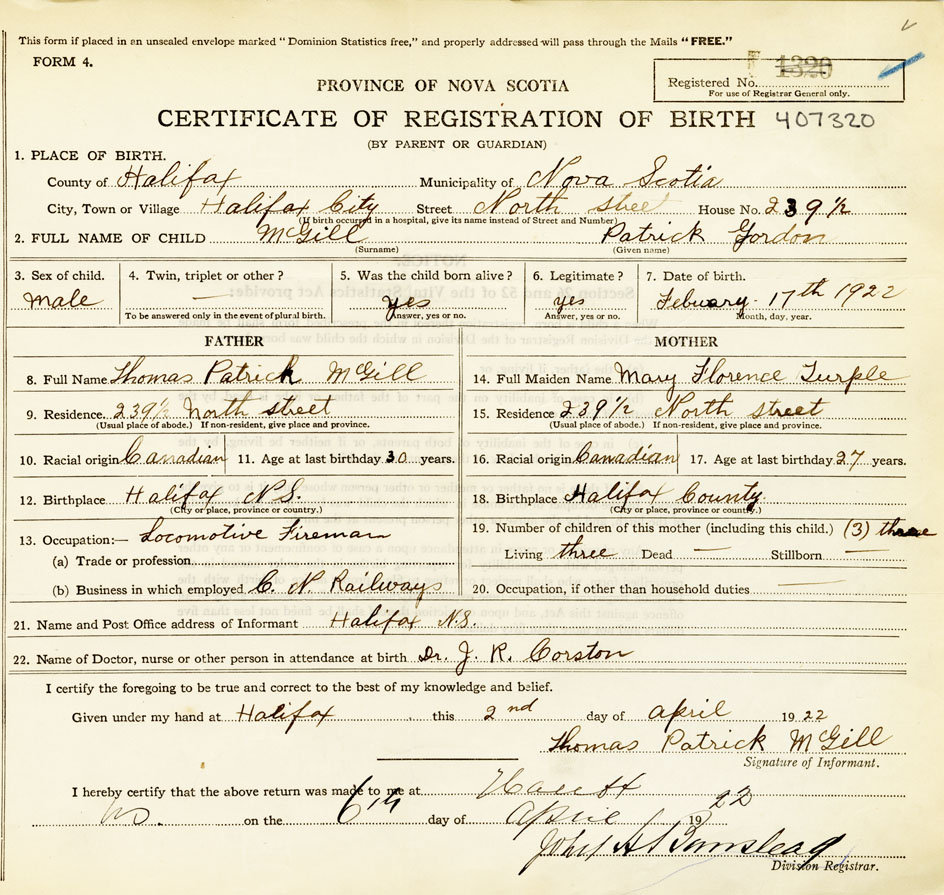 This form if placed in an unsealed envelope marked “Dominion Statistics free,” and properly addressed will pass through the Mails “FREE.”
FORM 4.
1320
Registered No.
For use of Registrar General only.
PROVINCE OF NOVA SCOTIA
CERTIFICATE OF REGISTRATION OF BIRTH 407320
(BY PARENT OR GUARDIAN)
1. PLACE OF BIRTH.
County of Halifax Municipality of Nova Scotia
City, Town or Village Halifax City Street North Street House No. 239½
(If birth occurred in a hospital, give its name instead of Street and Number)
2. FULL NAME OF CHILD McGill Patrick Gordon
(Surname) (Given name)
3. Sex of child. 4. Twin, triplet or other? 5. Was the child born alive? 6. Legitimate? 7. Date of birth.
Male — yes yes Febuary 17th 1922
To be answered only in the event of plural birth. Answer, yes or no. Answer, yes or no. Month, day, year.
FATHER MOTHER
8. Full Name Thomas Patrick McGill 14. Full Maiden Name Mary Florence Turple
9. Residence. 239½ North street 15. Residence 239½ North street
(Usual place of abode.) If non-resident, give place and province. (Usual place of abode.) If non-resident, give place and province.
10. Racial origin Canadian 11. Age at last birthday 30 years. 16. Racial origin Canadian 17. Age at last birthday 27 years.
12. Birthplace Halifax N.S. 18. Birthplace Halifax County
(City or place, province or country.) (City or place, province or country.)
13. Occupation:— Locomotive Fireman 19. Number of children of this mother (including this child.) (3) three
(a) Trade or profession Living three Dead — Stillborn —
(b) Business in which employed C. N. Railways 20. Occupation, if other than household duties
21. Name and Post Office address of Informant Halifax N.S.
22. Name of Doctor, nurse or other person in attendance at birth Dr. J. R. Corston
I certify the foregoing to be true and correct to the best of my knowledge and belief.
Given under my hand at Halifax this 2nd day of april 1922
Thomas Patrick McGill
Signature of Informant.
I hereby certify that the above return was made to me at
on the 6th day of April 1922
John A
Division Registrar.